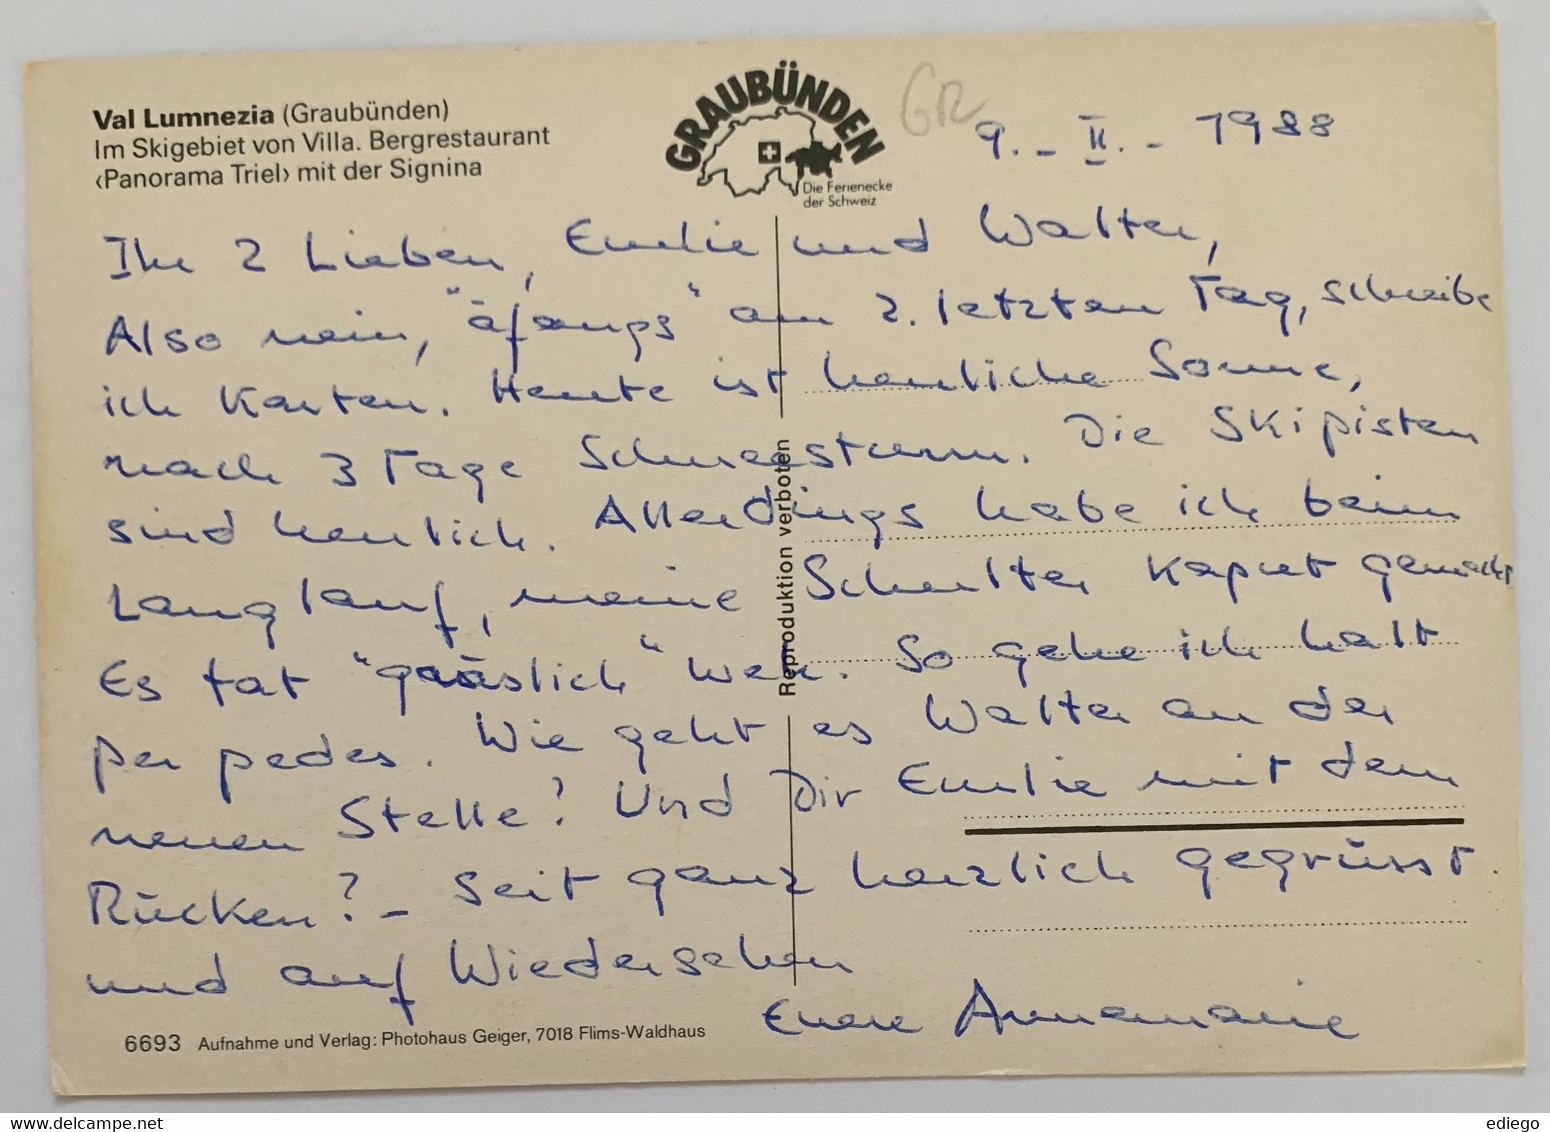 Val Lumnezia (Graubünden)
Im Skigebiet von Villa. Bergrestaurant
‹Panorama Triel› mit der Signina
GRAUBÜNDEN
Die Ferienecke
der Schweiz
GR
9. - II. - 1988
Ihr 2 Lieben, Emilie und Walter,
Also nein, "äfangs" am 2. letzten Tag, schreibe
ich Karten. Heute ist herrliche Sonne,
nach 3 Tage Schneesturm. Die Skipisten
sind herrlich. Allerdings habe ich beim
Langlauf, meine Schulter kaput gemacht
Es tat "grässlich" weh. So gehe ich halt
per pedes. Wie geht es Walter an der
neuen Stelle? Und Dir Emilie mit dem
Rücken? - Seit ganz herzlich gegrüsst.
und auf Wiedersehen
Eure Annemarie
Reproduktion verboten
6693 Aufnahme und Verlag: Photohaus Geiger, 7018 Flims-Waldhaus
ediego